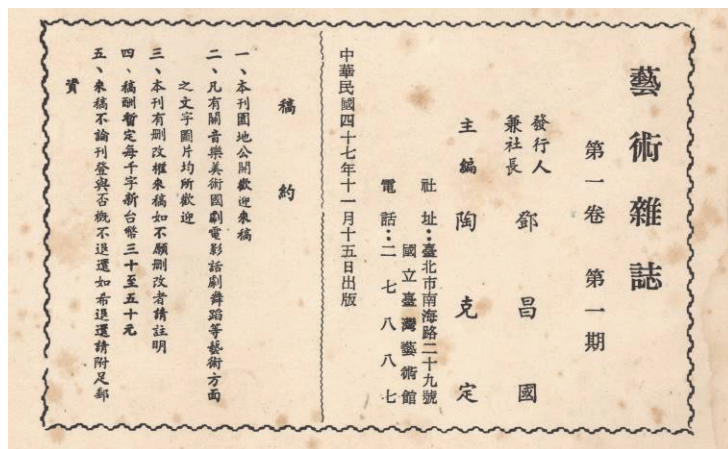 藝術雜誌
第一卷 第一期
發行人
兼社長 鄧昌國
主編 陶克定
社址：臺北市南海路二十九號
國立臺灣藝術館
電話：二七八八七
中華民國四十七年十一月十五日出版
稿約
一、本刊園地公開歡迎來稿
二、凡有關音樂美術國劇電影話劇舞蹈等藝術方面
之文字圖片均所歡迎
三、本刊有刪改權來稿如不願刪改者請註明
四、稿酬暫定每千字新台幣三十至五十元
五、來稿不論刊登與否概不退還如希退還請附足郵
資